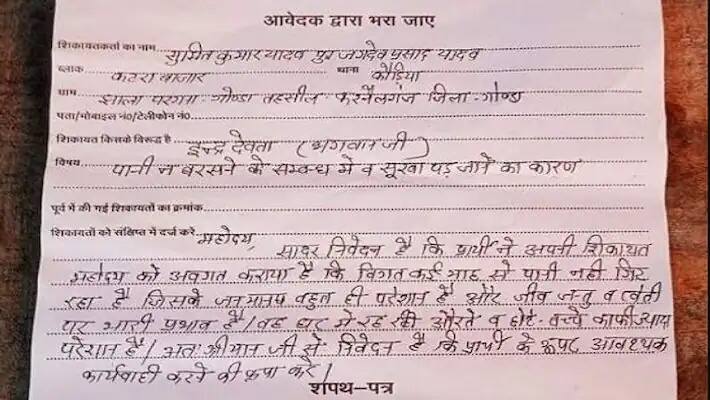 आवेदक द्वारा भरा जाए
शिकायतकर्ता का नाम सुमित कुमार यादव पुत्र जगदेव प्रसाद यादव
ब्लाक कटरा बाजार थाना कौडिया
ग्राम झाला परगना-गोण्डा तहसील-करनैलगंज जिला-गोण्डा
पता/मोबाइल नं0/टेलीफोन नं0
शिकायत किसके विरूद्ध है इन्द्र देवता (भगवान जी)
विषय पानी न बरसने के सम्बन्ध मे व सूखा पड़ जाने का कारण
पूर्व में की गई शिकायतों का क्रमांक
शिकायतों को संक्षिप्त में दर्ज करे महोदय,
सादर निवेदन है कि प्रार्थी ने अपनी शिकायत
महोदय को अवगत कराया है कि विगत कई माह से पानी नही गिर
रहा है जिसके जनमानष बहुत ही परेशान है और जीव जन्तु व खेती
पर भारी प्रभाव है/ वह घर मे रह रही औरते व छोटे-बच्चे काफी ज्यादा
परेशान है/ अतः श्रीमान जी से निवेदन है कि प्रार्थी के ऊपर आवश्यक
कार्यवाही करने की कृपा करे/
शपथ-पत्र